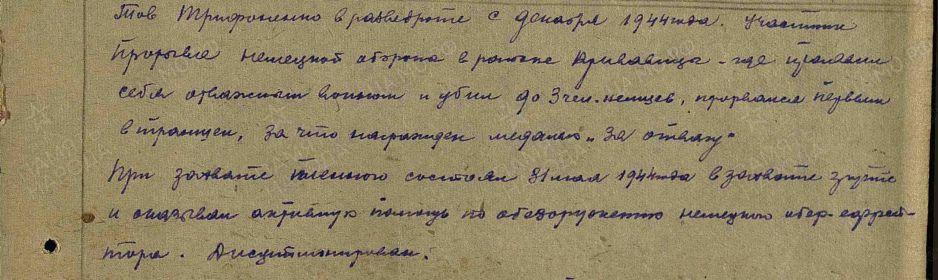 Тов Трифоненко в разведроте с декабря 1944 года. Участник
прорыва немецкой оборона в районе - где проявил
себя отважным воином и убил до 3 чел. немцев, ворвался первым
в траншеи, за что награжден медалью „За отвагу"
При захвате пленного состоял 31 мая 1944 года в захвате группе
и оказывал активную помощь по обезоружению немецкого обер-ефрей-
тора. Дисциплинирован.